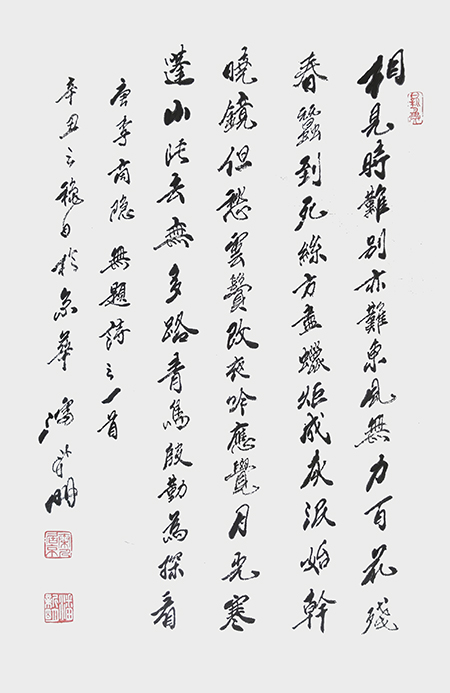 相見時難別亦難東風無力百花殘
春蠶到死絲方盡蠟炬成灰泪始幹
曉鏡但愁雲鬢改夜吟應覺月光寒
蓬山此去無多路青鳥殷勤為探看
唐李商隐無題詩之一首
辛丑之穐日於京華